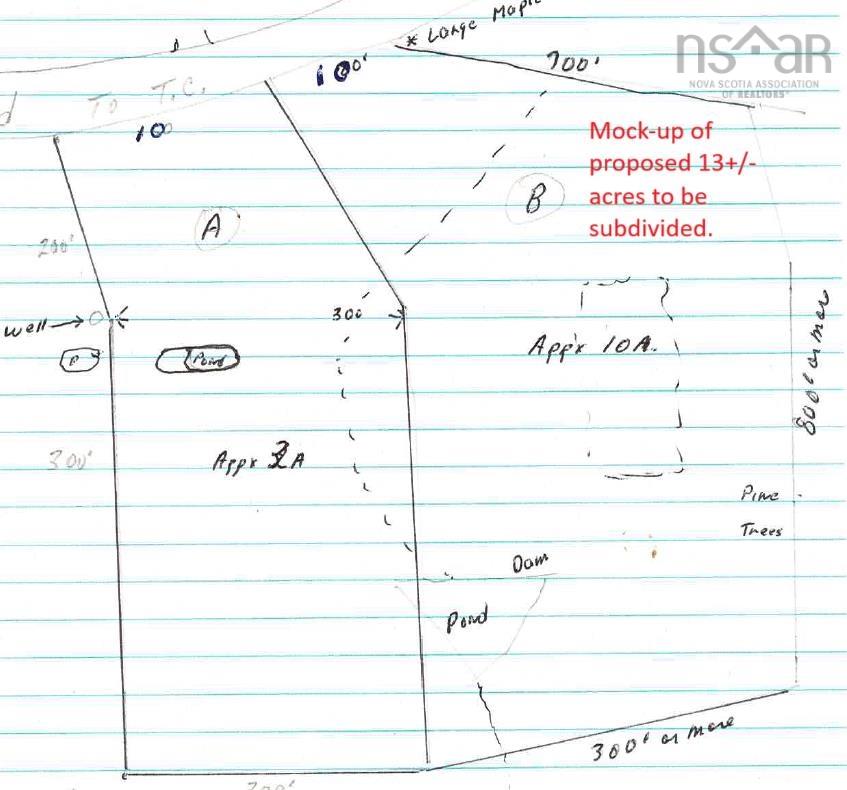 * Large Maple
700'
nsaar
NOVA SCOTIA ASSOCIATION
OF REALTORS®
To T.C.
100'
100
Mock-up of
proposed 13+/-
acres to be
subdivided.
A
B
200'
well →
300'
P
Pond
App'x 10A.
800' or more
300'
Appx 3A
Pine
Trees
Dam
Pond
300' or more